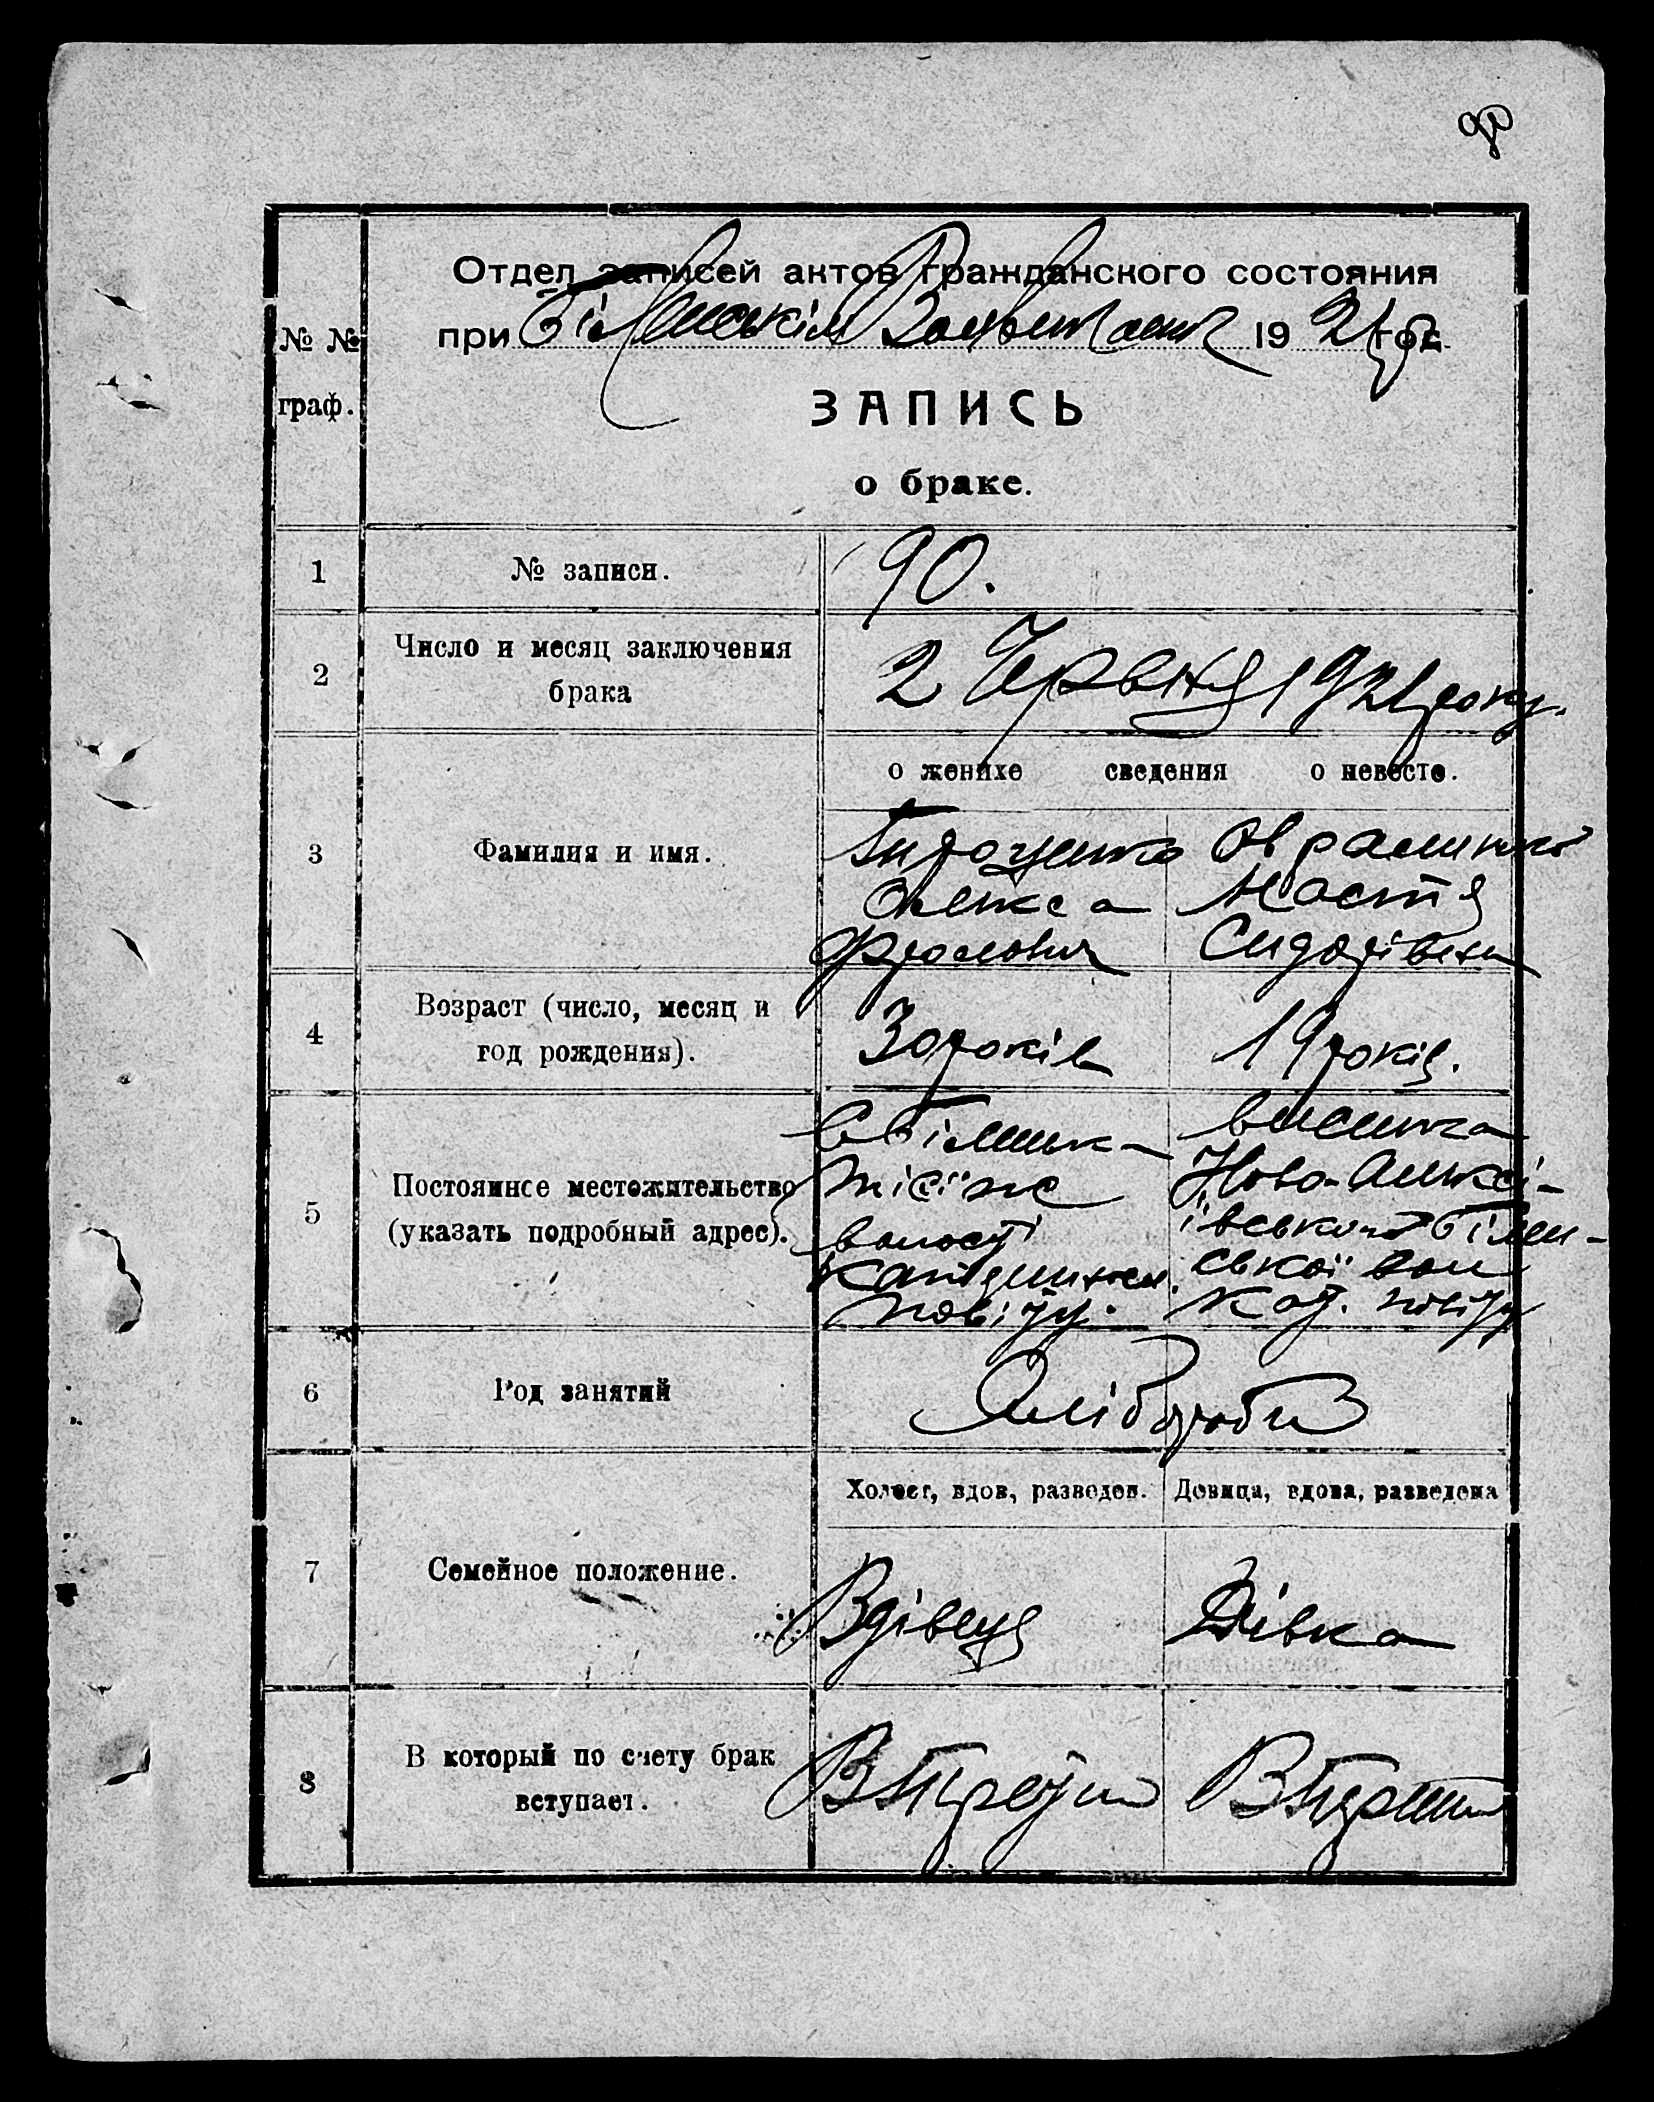 Отдел записей актов гражданского состояния
при Білинськім Волвиконкомі 1921 год
№ №
граф.
ЗАПИСЬ
о браке.
1 № записи. 90.
2 Число и месяц заключения
брака
2 Червня 1921 року.
о женихе сведения о невесте.
3 Фамилия и имя.
Олекса
Фролович
Настя
Сидорівна
4 Возраст (число, месяц и
год рождения).
30 років
19 років.
5 Постоянное местожительство
(указать подробный адрес).
волості
повіту.
висилка
Ново-Олексі-
ївського Білин-
ської вол
повіту
6 Род занятий
Хліборобы
Холост, вдов, разведен. Девица, вдова, разведена
7 Семейное положение.
Вдівець
Дівка
8 В который по счету брак
вступает.
В перший